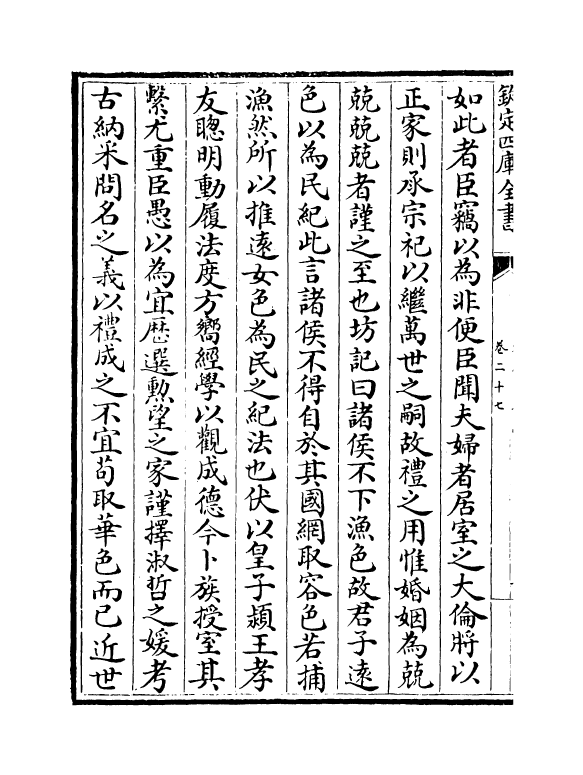 欽定四庫全書
卷二十七
如此者臣竊以為非便臣聞夫婦者居室之大倫將以
正家則承宗祀以繼萬世之嗣故禮之用惟婚姻為兢
兢兢兢者謹之至也坊記曰諸侯不下漁色故君子逺
色以為民紀此言諸侯不得自於其國網取容色若捕
漁然所以推逺女色為民之紀法也伏以皇子潁王孝
友聰明動履法度方嚮經學以觀成德今卜族授室其
繫尤重臣愚以為宜歴選勲望之家謹擇淑哲之媛考
古納采問名之義以禮成之不宜苟取華色而已近世